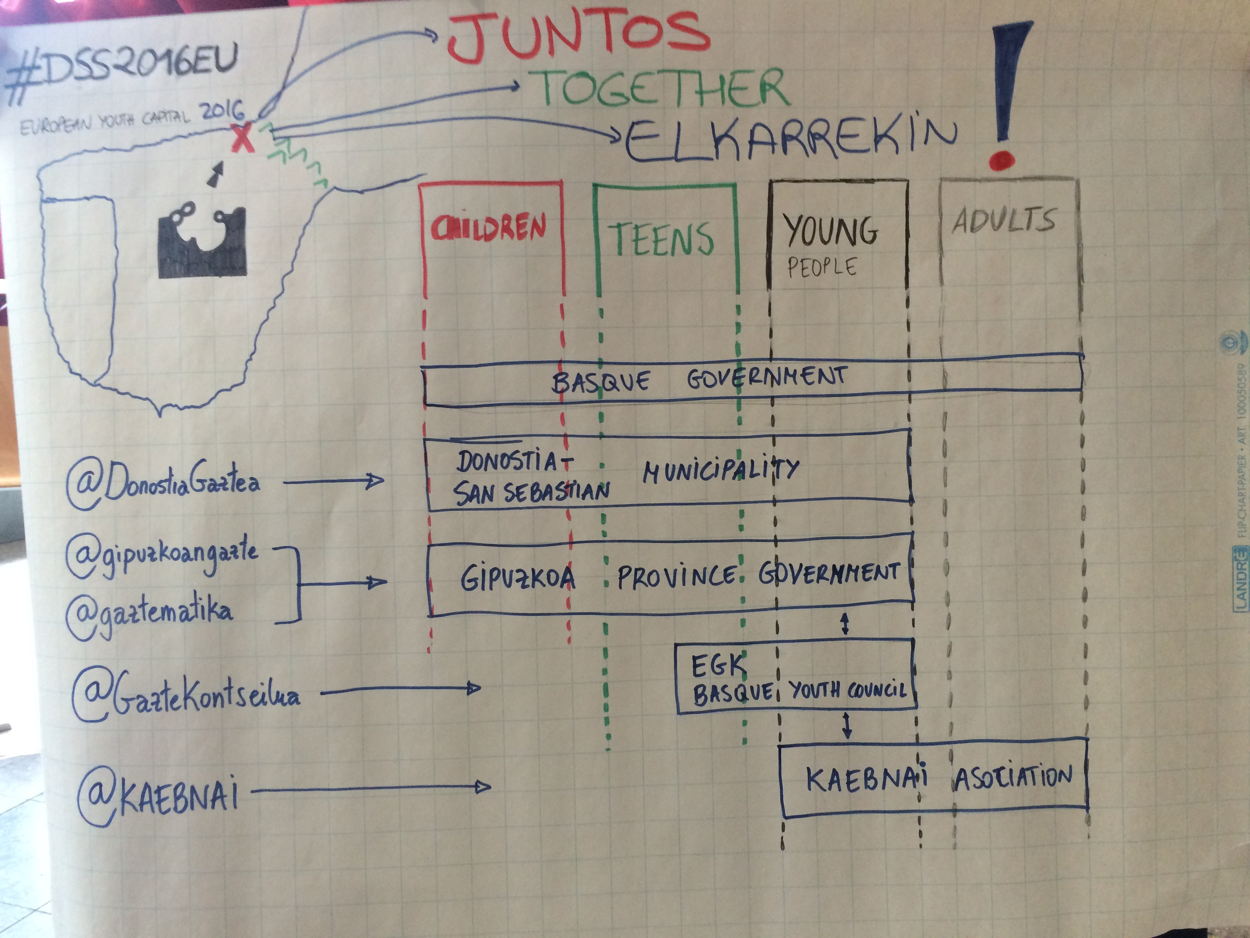 #DSS2016EU
EUROPEAN YOUTH CAPITAL 2016
X
JUNTOS
TOGETHER
ELKARREKIN !
CHILDREN
TEENS
YOUNG
PEOPLE
ADULTS
BASQUE GOVERNMENT
@DonostiaGaztea
DONOSTIA-
SAN SEBASTIAN
MUNICIPALITY
@gipuzkoangazte
@gaztematika
GIPUZKOA PROVINCE GOVERNMENT
@GazteKontseilua
EGK
BASQUE YOUTH COUNCIL
@KAEBNAI
KAEBNAI ASOTIATION
LANDRÉ FLIPCHART-PAPIER • ART. 100050589